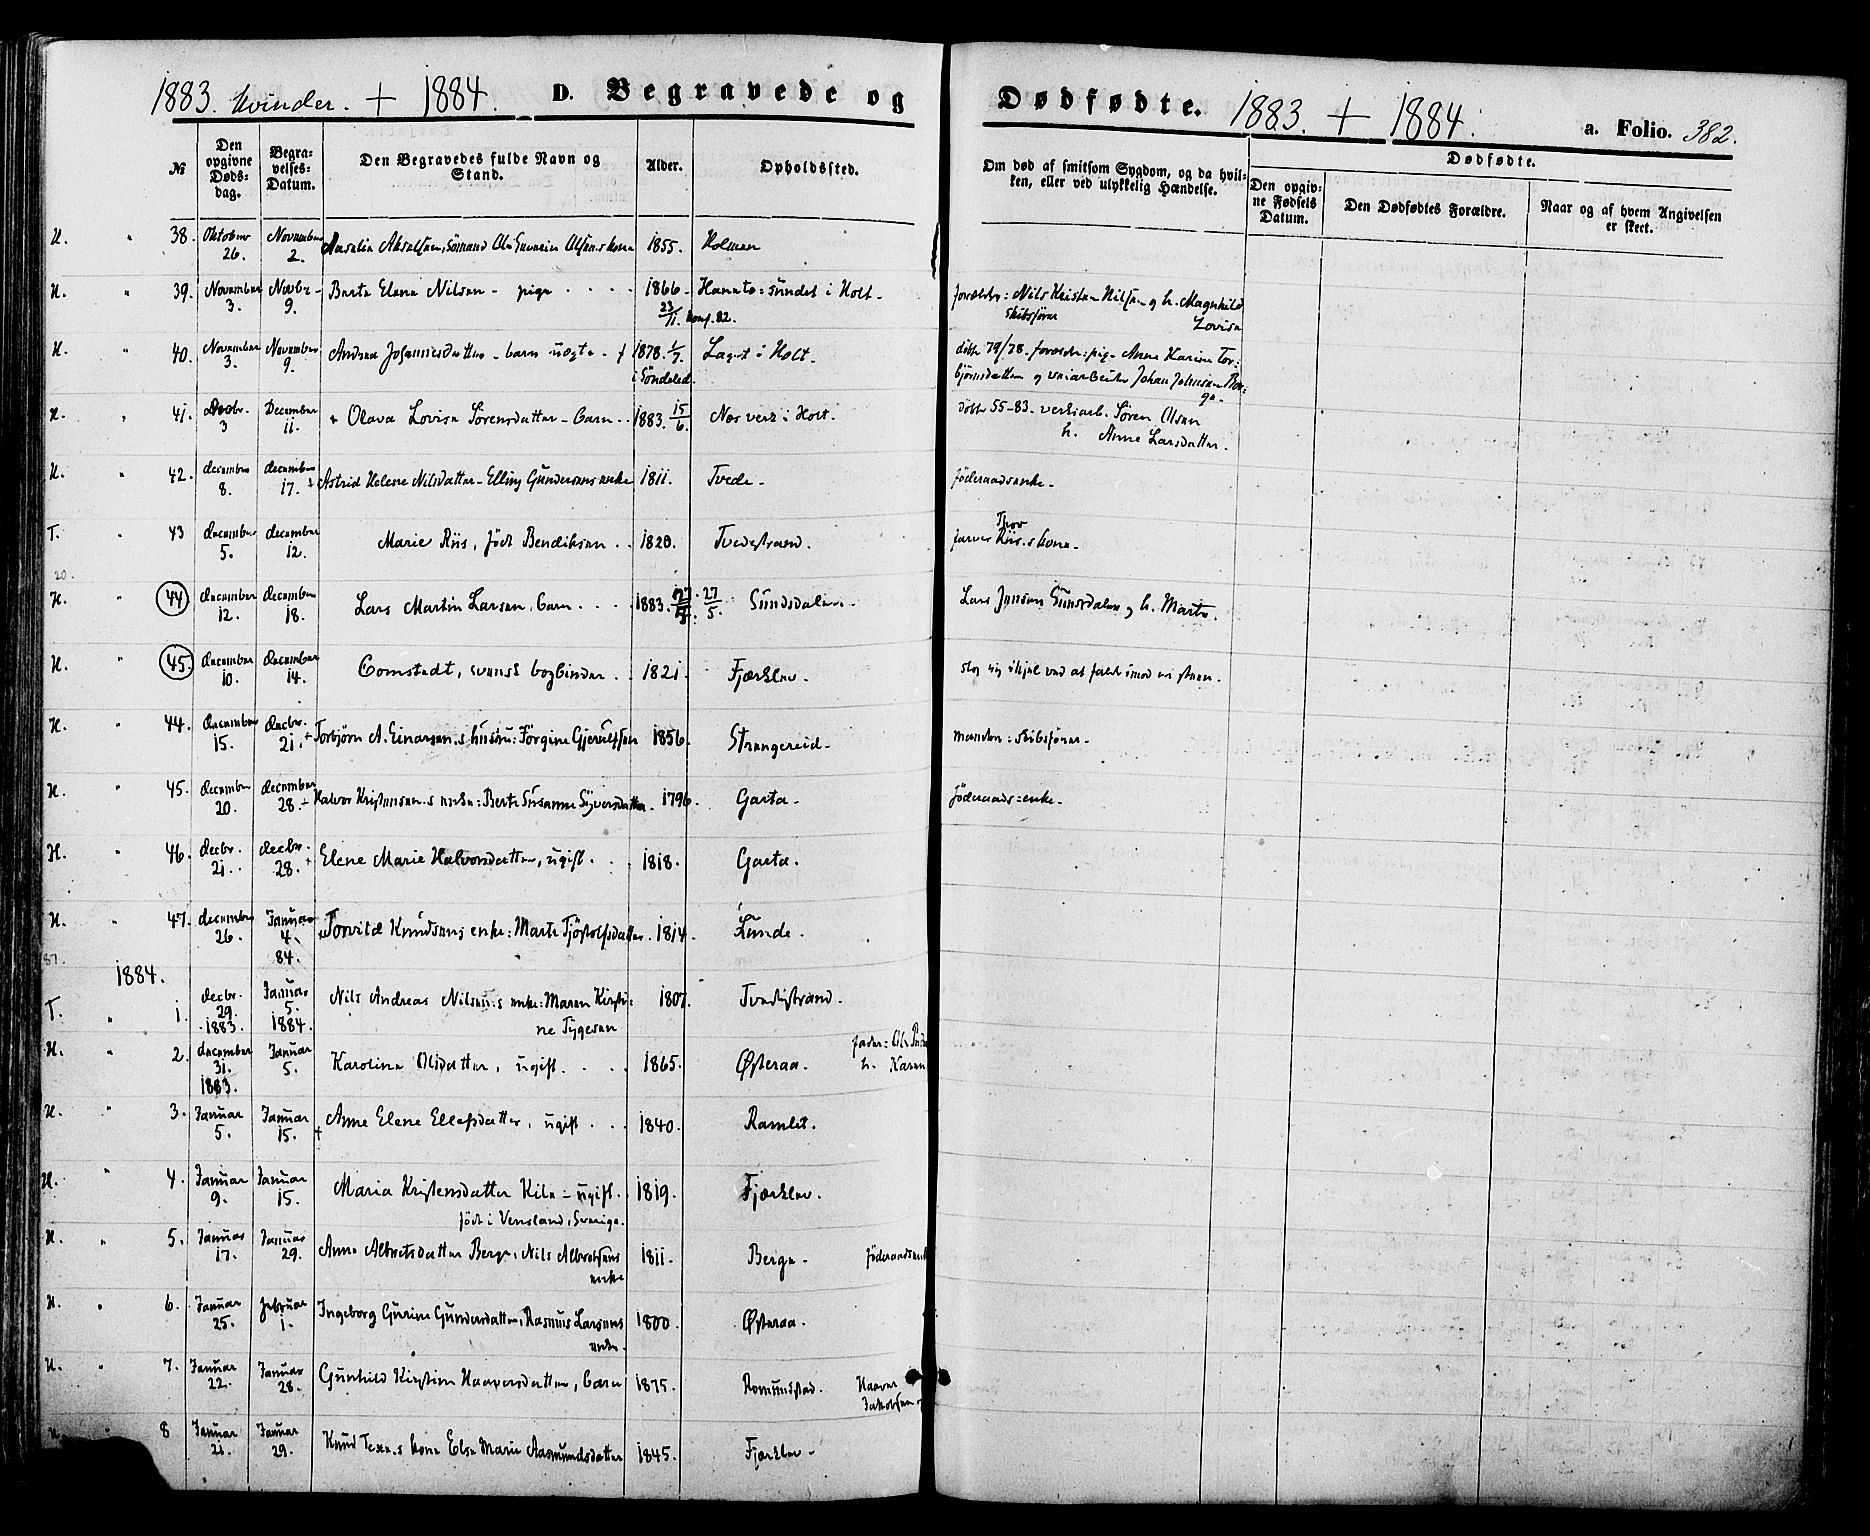 1883. Kvinder. + 1884. D. Begravede og Dødfødte. 1883. + 1884. a. Folio. 382.
№ Den opgivne Dødsdag. Begravelses-Datum. Den Begravedes fulde Navn og Stand. Alder. Opholdssted. Om død af smitsom Sygdom, og da hvilken, eller ved ulykkelig Hændelse. Dødfødte.
Den opgivne Fødsels Datum. Den Dødfødtes Forældre. Naar og af hvem Angivelsen er skeet.
H. " 38. Oktober 26. November 2. Akselsen, Sømand Ole Olsens kone 1855. Holmen
H. " 39. November 3. Novbr. 9. Berte Elene Nilsen - pige 1866 23/11. konf. 82. sundet i Holt. forældre: Nils Kristen Nilsen og h. Magnhild Lovise
skibsfører
H. " 40. November 3. November 9. Andrea Johannesdatter - barn uægte 1878. 1/7. i Søndeled. Laget i Holt. døbt 79/78. forældre: pige Anne Karine Torbjørnsdatter og veiarbeider Johan Johnsen
H. " 41. Decbr. 3 December 11. + Olava Lovise Sørensdatter - barn 1883. 15/6. Næs verk i Holt. døbt 55-83. verksarb. Søren Olsen
h. Anne Larsdatter.
H. " 42. december 8. december 17. + Astrid Helene Nilsdatter - Elling Gundersens enke 1811. Tvede. føderaadsenke.
T. " 43 december 5. december 12. Marie Riis, født Bendiksen 1820. Tvedestrand. farver Thor Riis.s kone.
20.
H. " 44 december 12. december 18. Lars Martin Larsen, barn 1883. 27/5. 27/5. Sundsdalen. Lars Jensen Sundsdalen og h. Marte.
H. " 45. december 10. december 14. Comstedt, svensk bogbinder 1821. Fjærklev. slog sig ihjel ved at falde imod en sten.
H. " 44. december 15. decbr. 21. + Torbjørn A. Einarsen.s hustru: Jørgine Gjerulfsen 1856. Strengereid. manden: skibsfører.
H. " 45. december 20. december 28. + Halvor Kristensen.s enke: Berte Susanne Syversdatter. 1796. Garta. føderaads=enke.
H. " 46. decbr. 21. decbr. 28. + Elene Marie Halvorsdatter, ugift. 1818. Garta.
H. " 47. december 26. Januar 4. 84. Torvild Knudsens enke: Marte Tjøstolfsdatter. 1814. Lunde.
87.
1884.
T. " 1. decbr. 29. 1883. Januar 5. 1884. Nils Andreas Nilsen.s enke: Maren Kirstine Tygesen 1807. Tvedestrand.
H. " 2. december 31. 1883. Januar 5. Karoline Olsdatter, ugift. 1865. Østeraa. fader: Ole
h. Karen
H. " 3. Januar 5. Januar 15. + Anne Elene Ellefsdatter, ugift. 1840. Ramlet.
H. " 4. Januar 9. Januar 15. Maria Kristensdatter Kile - ugift. 1819. Fjærklev.
født i Vensland, Sverige.
H. " 5. Januar 17. Januar 29. Anne Albretsdatter Berge, Nils Albretsens enke 1811. Berge. føderaadsenke
H. " 6. Januar 25. februar 1. Ingeborg Gurine Gundersdatter, Rasmus Larsens enke. 1800. Østeraa.
H. " 7. Januar 22. Januar 28. Gunhild Kirstine Haaversdatter, barn 1875. Romundstad. Haaver
Jakobsen
H. " 8 Januar 21. Januar 29. Knud Texen.s kone Else Marie Aasmundsdatter 1845. Fjærklev.